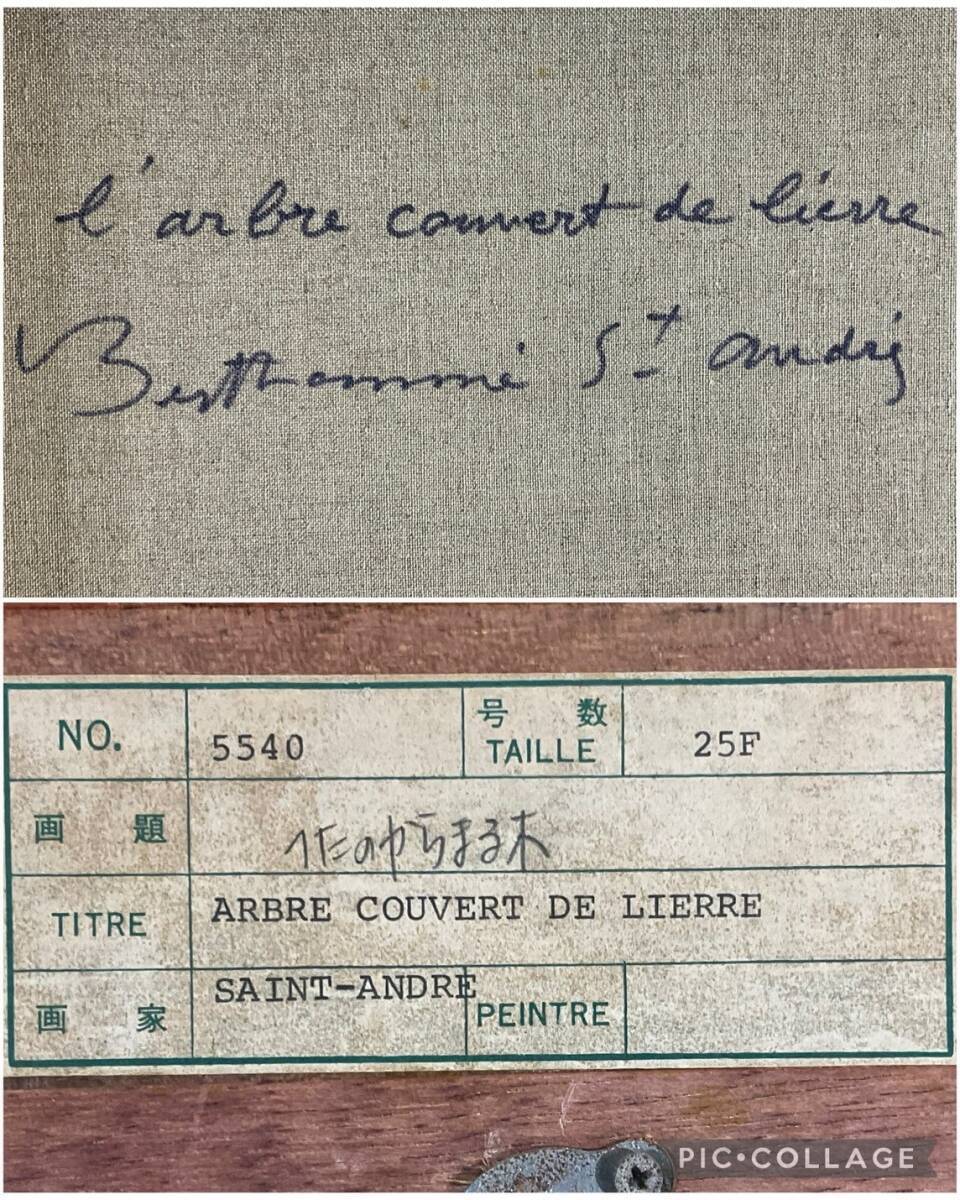 l'arbre couvert de lierre
Berthommé St André
NO. 5540 号数 TAILLE 25F
画題 つたのからまる木
TITRE ARBRE COUVERT DE LIERRE
画家 SAINT-ANDRE PEINTRE
PIC•COLLAGE